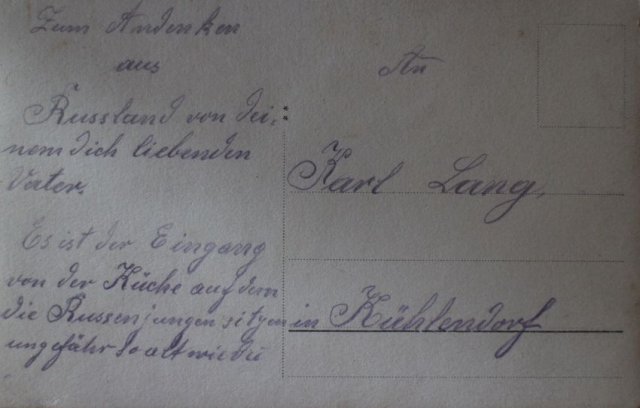 Zum Andenken
aus
Russland von dei-
nem dich liebenden
Vater.
Es ist der Eingang
von der Küche auf dem
die Russenjungen sitzen
ungefähr so alt wie du
An
Karl Lang,
in Kühlendorf